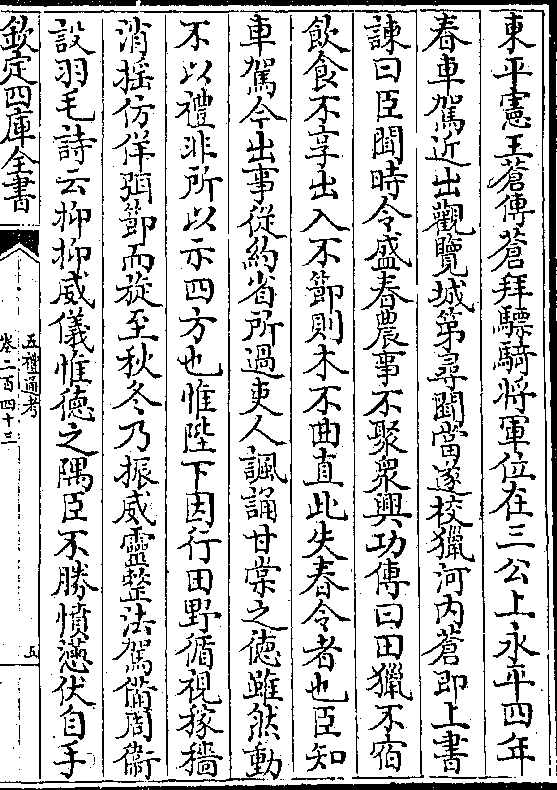 東平憲王蒼傳蒼拜驃騎將軍位在三公上永平四年
春車駕近出觀覽城第尋聞當遂校獵河内蒼即上書
諫曰臣聞時令盛春農事不聚衆興功傳曰田獵不宿
飲食不享出入不節則木不曲直此失春令者也臣知
車駕今出事從約省所過吏人諷誦甘棠之德雖然動
不以禮非所以示四方也惟陛下因行田野循視稼穡
消搖仿佯弭節而旋至秋冬乃振威靈整法駕備周衞
設羽毛詩云抑抑威儀惟德之隅臣不勝憤懣伏自手
欽定四庫全書
五禮通考
卷二百四十三
五